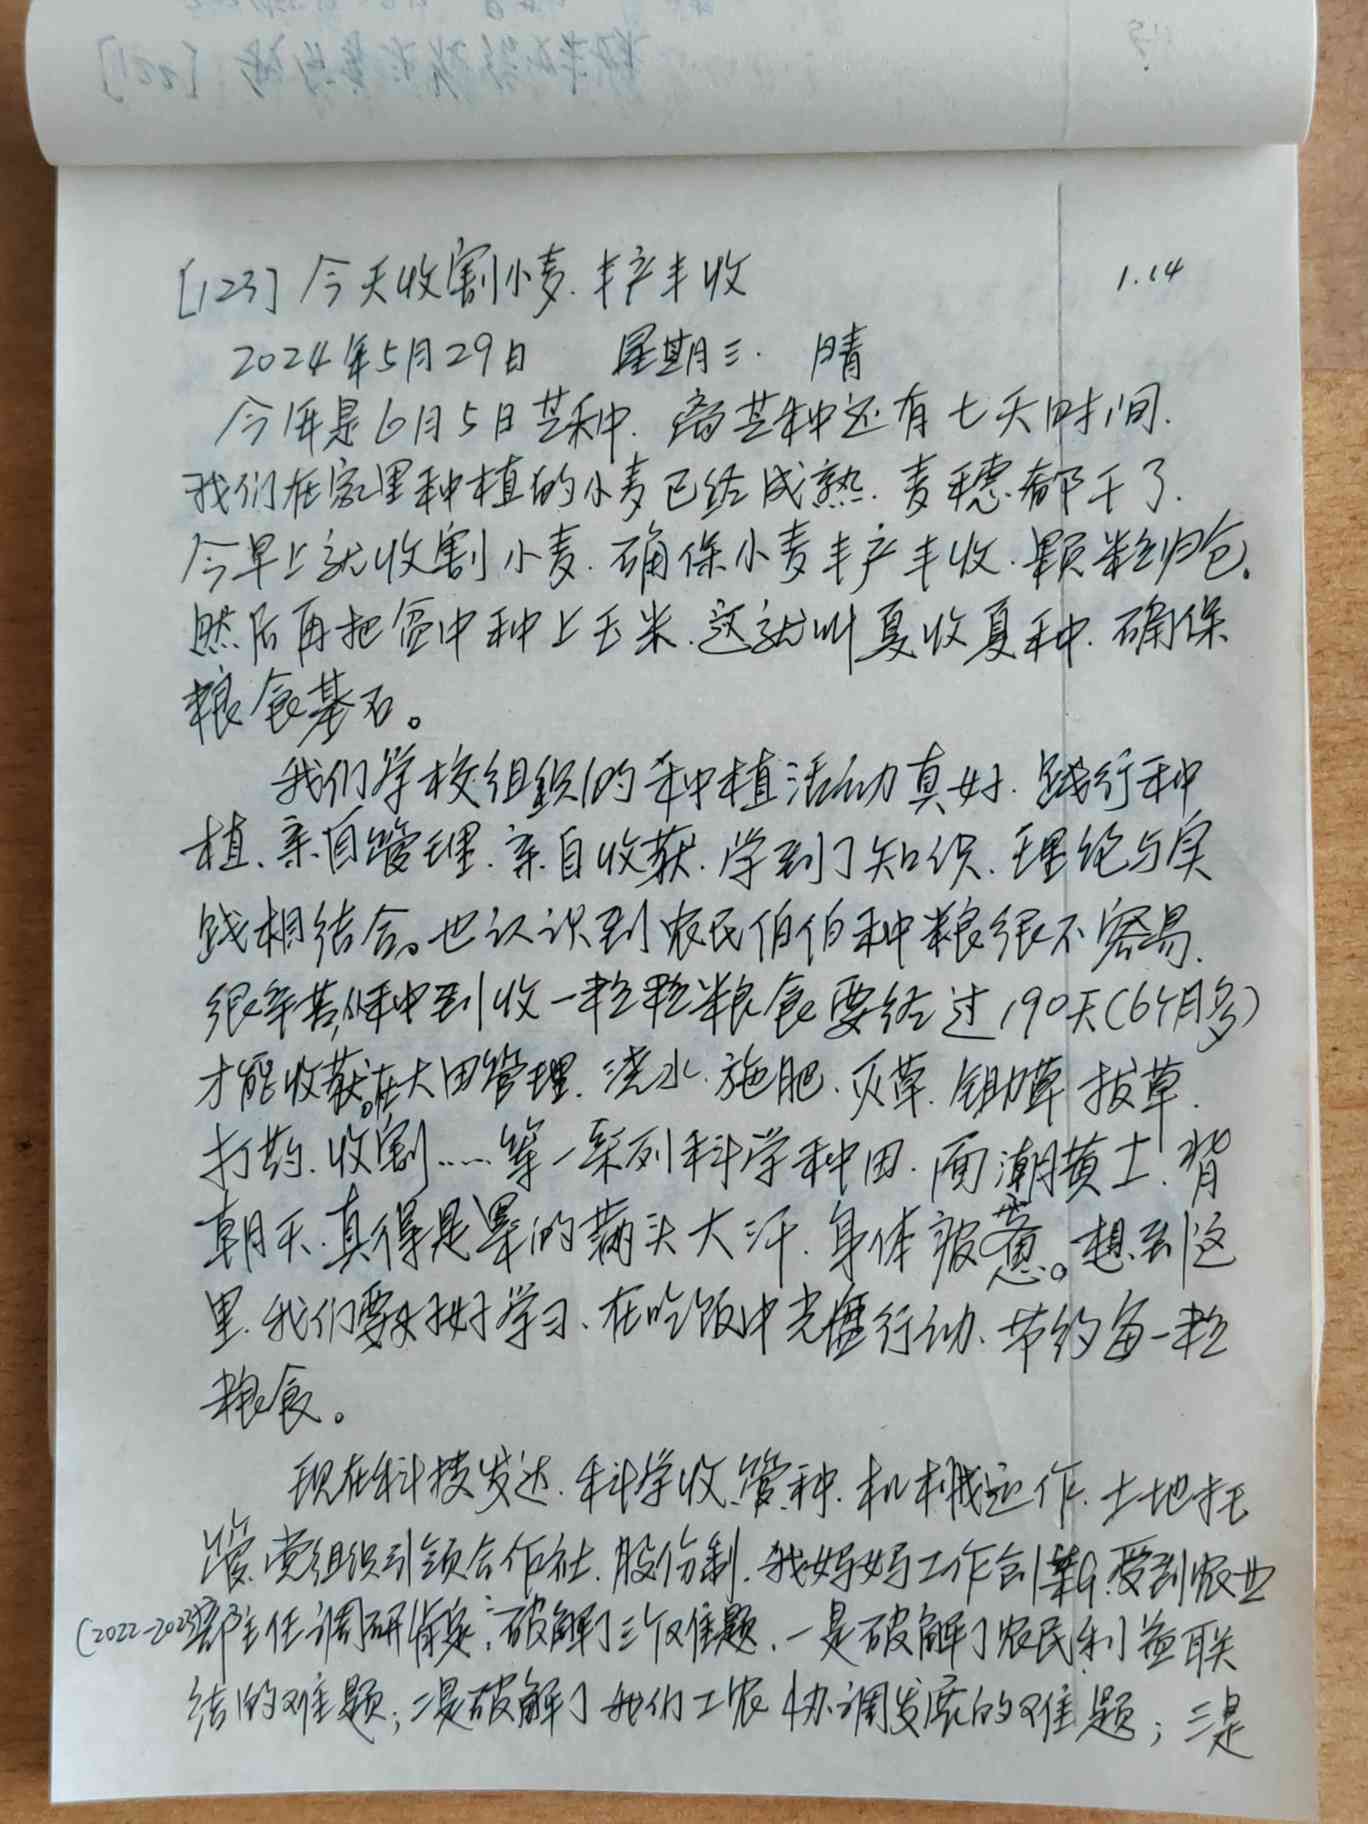 [123] 今天收割小麦.丰产丰收 1.14
2024年5月29日 星期三. 晴
今年是6月5日芒种.离芒种还有七天时间.
我们在家里种植的小麦已经成熟.麦穗都干了.
今早上就收割小麦.确保小麦丰产丰收.颗粒归仓.
然后再把空中种上玉米.这就叫夏收夏种.确保
粮食基石。
我们学校组织的种植活动真好.践行种
植、亲自管理.亲自收获.学到了知识.理论与实
践相结合。也认识到农民伯伯种粮很不容易.
很辛苦,从种到收一粒粒粮食要经过190天(6个月多)
才能收获。在大田管理.浇水.施肥.灭草.锄草.拔草.
打药.收割……等一系列科学种田.面潮黄土.背
朝天.真得是累的满头大汗.身体疲惫。想到这
里.我们要好好学习、在吃饭中光盘行动、节约每一粒
粮食。
现在科技发达.科学收、管、种.机械运作.土地托
管、党组织引领合作社.股份制.我妈妈工作创.受到农业
(2022-2023)部主任调研肯定;破解了三个难题.一是破解了农民利益联
结的难题;二是破解了我们工农协调发展的难题;三是